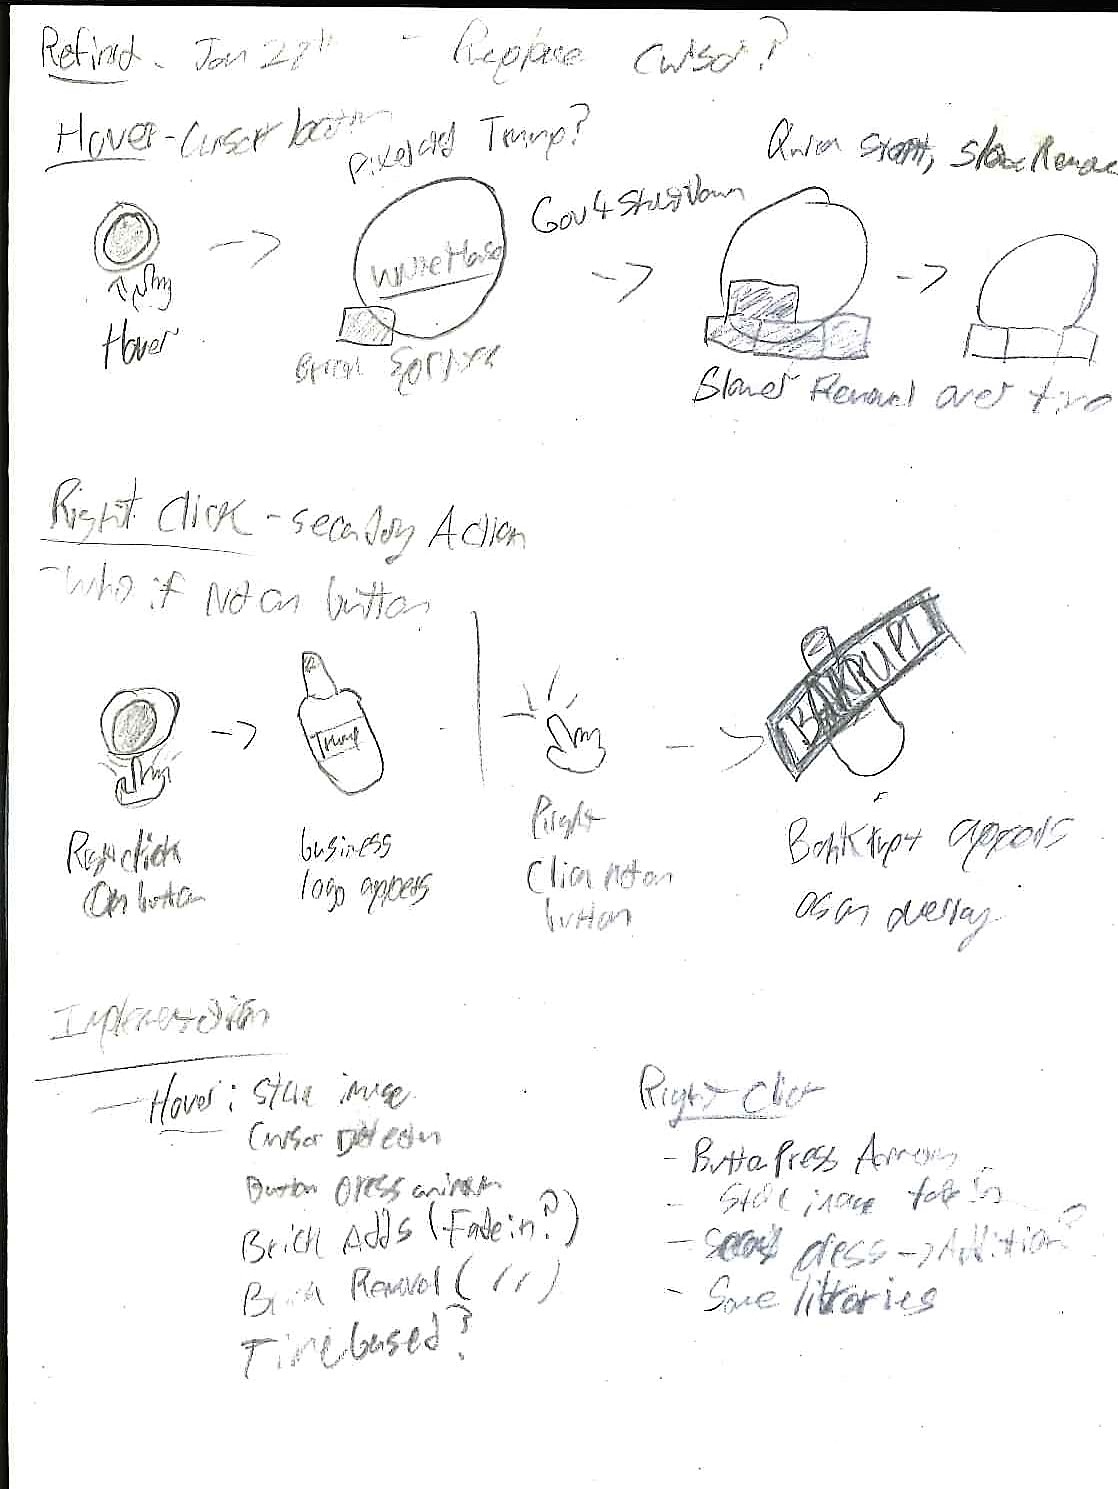 Refined. Jan 27th - Replace Cursor?
Hover - Cursor location
Pixelated Trump?
Quick start, Slow Remove
Gov4 ShutDown
WhiteHouse
Hover
Brick Sprites
Slower Removal over time
Right Click - secondary Action
- Who if Not on button
Trump
BANKRUPT
Right click
On button
business
logo appears
Right
Click not on
button
Bankrupt appears
as an overlay
Implementation
- Hover: Static image
Cursor Detection
Button press animation
Brick Adds (Fade in?)
Brick Removal ( // )
Time based?
Right Click
- Button Press
- Static image fade in
- Second press -> Addition?
- Some libraries